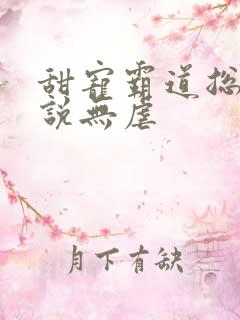 甜寵霸道总
說無虐
月下有缺